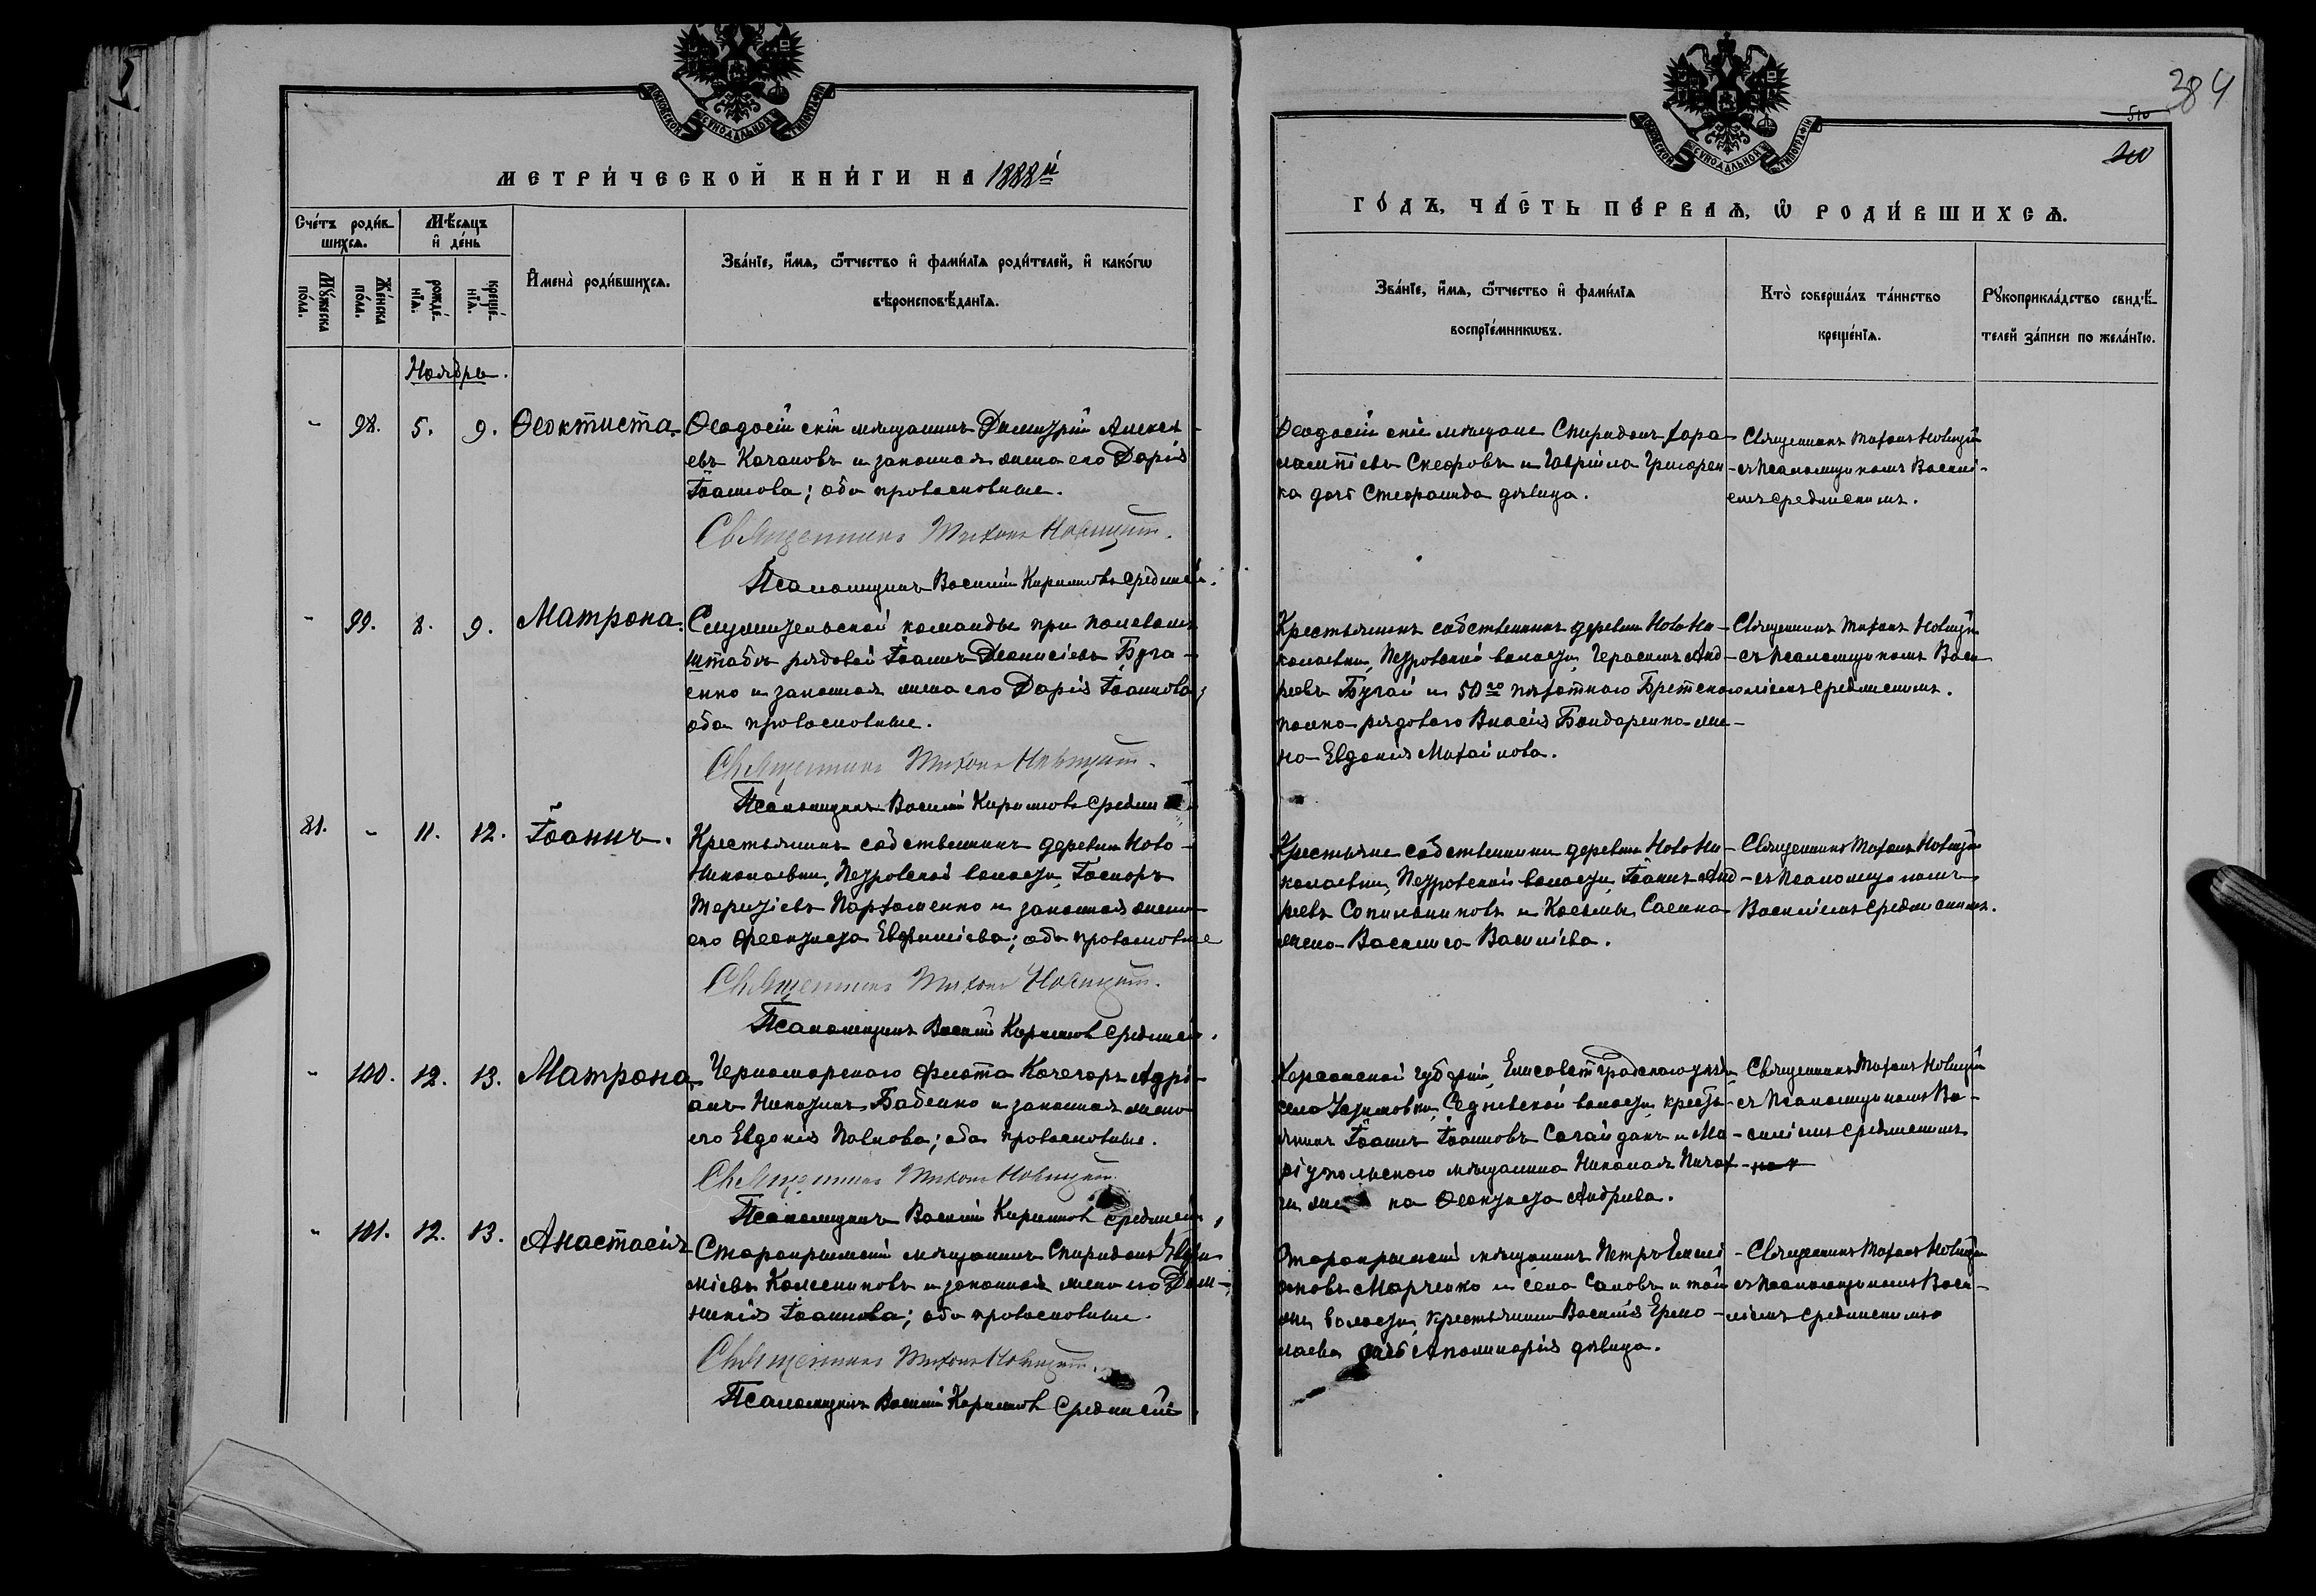 МОСКОВСКОЙ СѴНОДАЛЬНОЙ ТИПОГРАФІИ
МЕТРИ́ЧЕСКОЙ КНИ́ГИ НА 1888й
Сче́тъ роди́в-
шихсѧ.
Мѣ́сѧцъ
и҆ де́нь
Мꙋ́жеска
по́ла.
Же́нска
по́ла.
рожде́-
нїѧ.
креще́-
нїѧ.
И҆мена̀ роди́вшихсѧ.
Зва́нїе, и҆́мѧ, ѻ҆́тчество и҆ фами́лїѧ роди́телей, и҆ како́гѡ
вѣроисповѣ́данїѧ.
Ноябрь.
- 98. 5. 9. Ѳеоктиста.
Ѳеодосійскій мѣщанинъ Димитрій Алексѣ-
евъ Качановъ и законная жена его Дарія
Іоаннова; оба православные.
Священникъ Тихонъ Новицкій.
Псаломщикъ Василій Кирилловъ Срединскій.
- 99. 8. 9. Матрона.
Служительской команды при полевомъ
штабѣ рядовой Іоаннъ Діонисіевъ Буга-
енко и законная жена его Дарія Іоаннова;
оба православные.
Священникъ Тихонъ Новицкій.
Псаломщикъ Василій Кирилловъ Средин
81. - 11. 12. Іоаннъ.
Крестьянинъ собственникъ деревни Ново-
Николаевки, Петровской волости,
Пархоменко и законная жена
его Ѳеоктиста Евфиміева; оба православные
Священникъ Тихонъ Новицкій.
Псаломщикъ Василій Кирилловъ Срединскій.
- 100. 12. 13. Матрона
Черноморскаго флота Кочегаръ Адрі-
анъ Никитинъ Бабенко и законная жена
его Евдокія Павлова; оба православные.
Священникъ Тихонъ Новицкій.
Псаломщикъ Василій Кирилловъ Срединскій,
- 101. 12. 13. Анастасія
Старокрымскій мѣщанинъ Спиридонъ Евфи-
міевъ Колесниковъ и законная жена его Дом-
никія Іоаннова; оба православные.
Священникъ Тихонъ Новицкій.
Псаломщикъ Василій Кирилловъ Срединскій
384
510
МОСКОВСКОЙ СѴНОДАЛЬНОЙ ТИПОГРАФІИ
ГО́ДЪ, ЧА́СТЬ ПЕ́РВАѦ, Ѡ҆ РОДИ́ВШИХСѦ.
Зва́нїе, и҆́мѧ, ѻ҆́тчество и҆ фами́лїѧ
воспрїе́мникѡвъ.
Кто̀ соверша́лъ та́инство
креще́нїѧ.
Рꙋкоприкла́дство свидѣ́-
телей за́писи по жела́нїю.
Ѳеодосійскіе мѣщане Спиридонъ Хара-
лампіевъ и Гавріила Григорен-
ка дочь Стефанида дѣвица.
Священникъ Тихонъ Новицкій
съ псаломщикомъ Василі-
емъ Срединскимъ.
Крестьянинъ собственникъ деревни Ново Ни-
колаевки, Петровской волости, Герасимъ Анд-
реевъ Бугай и 50го пѣхотнаго Брестскаго
полка рядового Власія Бондаренка же-
на Евдокія Михайлова.
Священникъ Тихонъ Новицкій
съ псаломщикомъ Васи-
ліемъ Срединскимъ.
Крестьяне собственники деревни Ново Ни-
колаевки, Петровской волости, Іоаннъ Анд-
реевъ и Космы Саенка
жена Василиса Василіева.
Священникъ Тихонъ Новицкій
съ псаломщикомъ
Василіемъ Срединскимъ.
Херсонской губерніи, Елисаветградскаго уѣзда,
села волости, кресть-
янинъ Іоаннъ Іоанновъ Сагайдакъ и Ма-
ріупольскаго мѣщанина Николая
на Ѳеоктиста Андреева.
Священникъ Тихонъ Новицкій
съ псаломщикомъ Ва-
силіемъ Срединскимъ
Старокрымскій мѣщанинъ Петръ
Марченко и села
волости, крестьянина Василія Ермо-
лаева дочь Аполинарія дѣвица.
Священникъ Тихонъ Новицкій
съ псаломщикомъ Васи-
ліемъ Срединскимъ